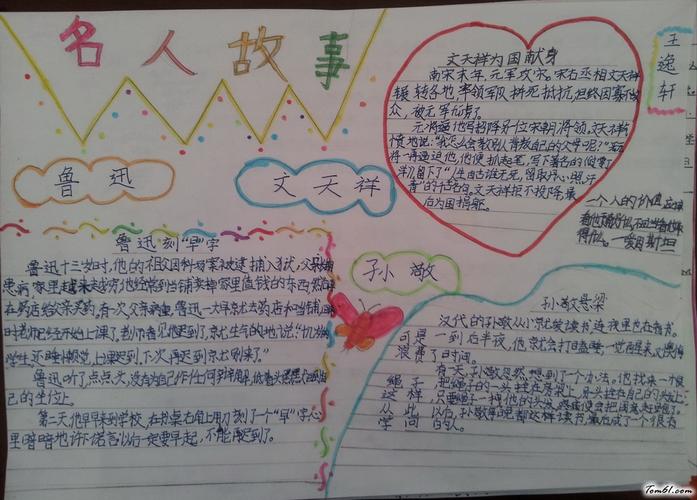 名人故事
王逸轩
鲁迅
文天祥
文天祥为国献身
南宋末年,元军攻宋,宋右丞相文天祥
辗转各地,率领军队拼死抵抗,但终因寡不敌
众,被元军俘虏了。
元将逼他写招降另一位宋朝将领,文天祥愤
愤地说:"我怎么会教别人背叛自己的父母呢?"元
将一再逼迫他,他便抓起笔,写下著名的《过零丁
洋》,留下了"人生自古谁无死,留取丹心照汗
青"的千古名句。文天祥拒不投降,最
后为国捐躯。
一个人的价值,应该
看他贡献什么,不应当看他取
得什么。—爱因斯坦
鲁迅刻"早"字
鲁迅十三岁时,他的祖父因科场案被逮捕入狱,父亲长期
患病,家里越来越穷,他经常到当铺卖掉家里值钱的东西,然后
在药店给父亲买药,有一次,父亲病重,鲁迅一大早就去药店和当铺,回来
时老师已经开始上课了,老师看见他迟到了,就生气的地说:"十几岁的
学生,还睡懒觉,上课迟到,下次再迟到就别来了。"
鲁迅听了,点点头,没有为自己作任何辩解,低着头默默回到自
己的坐位上。
第二天,他早早来到学校,在书桌右角上用刀刻了一个"早"字,心
里暗暗地许下诺言:以后一定要早起,不能再迟到了。
孙敬
孙敬悬梁
汉代的孙敬从小就爱读书,连夜里也在看书。
可是一到后半夜,他就会打瞌睡,一觉醒来,又懊悔
浪费了时间。
有一天,孙敬忽然想到了个办法。他找来一根
绳子,把绳子的一头拴在房梁上,另一头拴在自己的头发上,
这样,只要绳子一扯他的头发,疼痛便会把困意赶跑了。
从此以后,孙敬每晚都这样读书,最后成了一个很有
学问的人。
Tom61.com